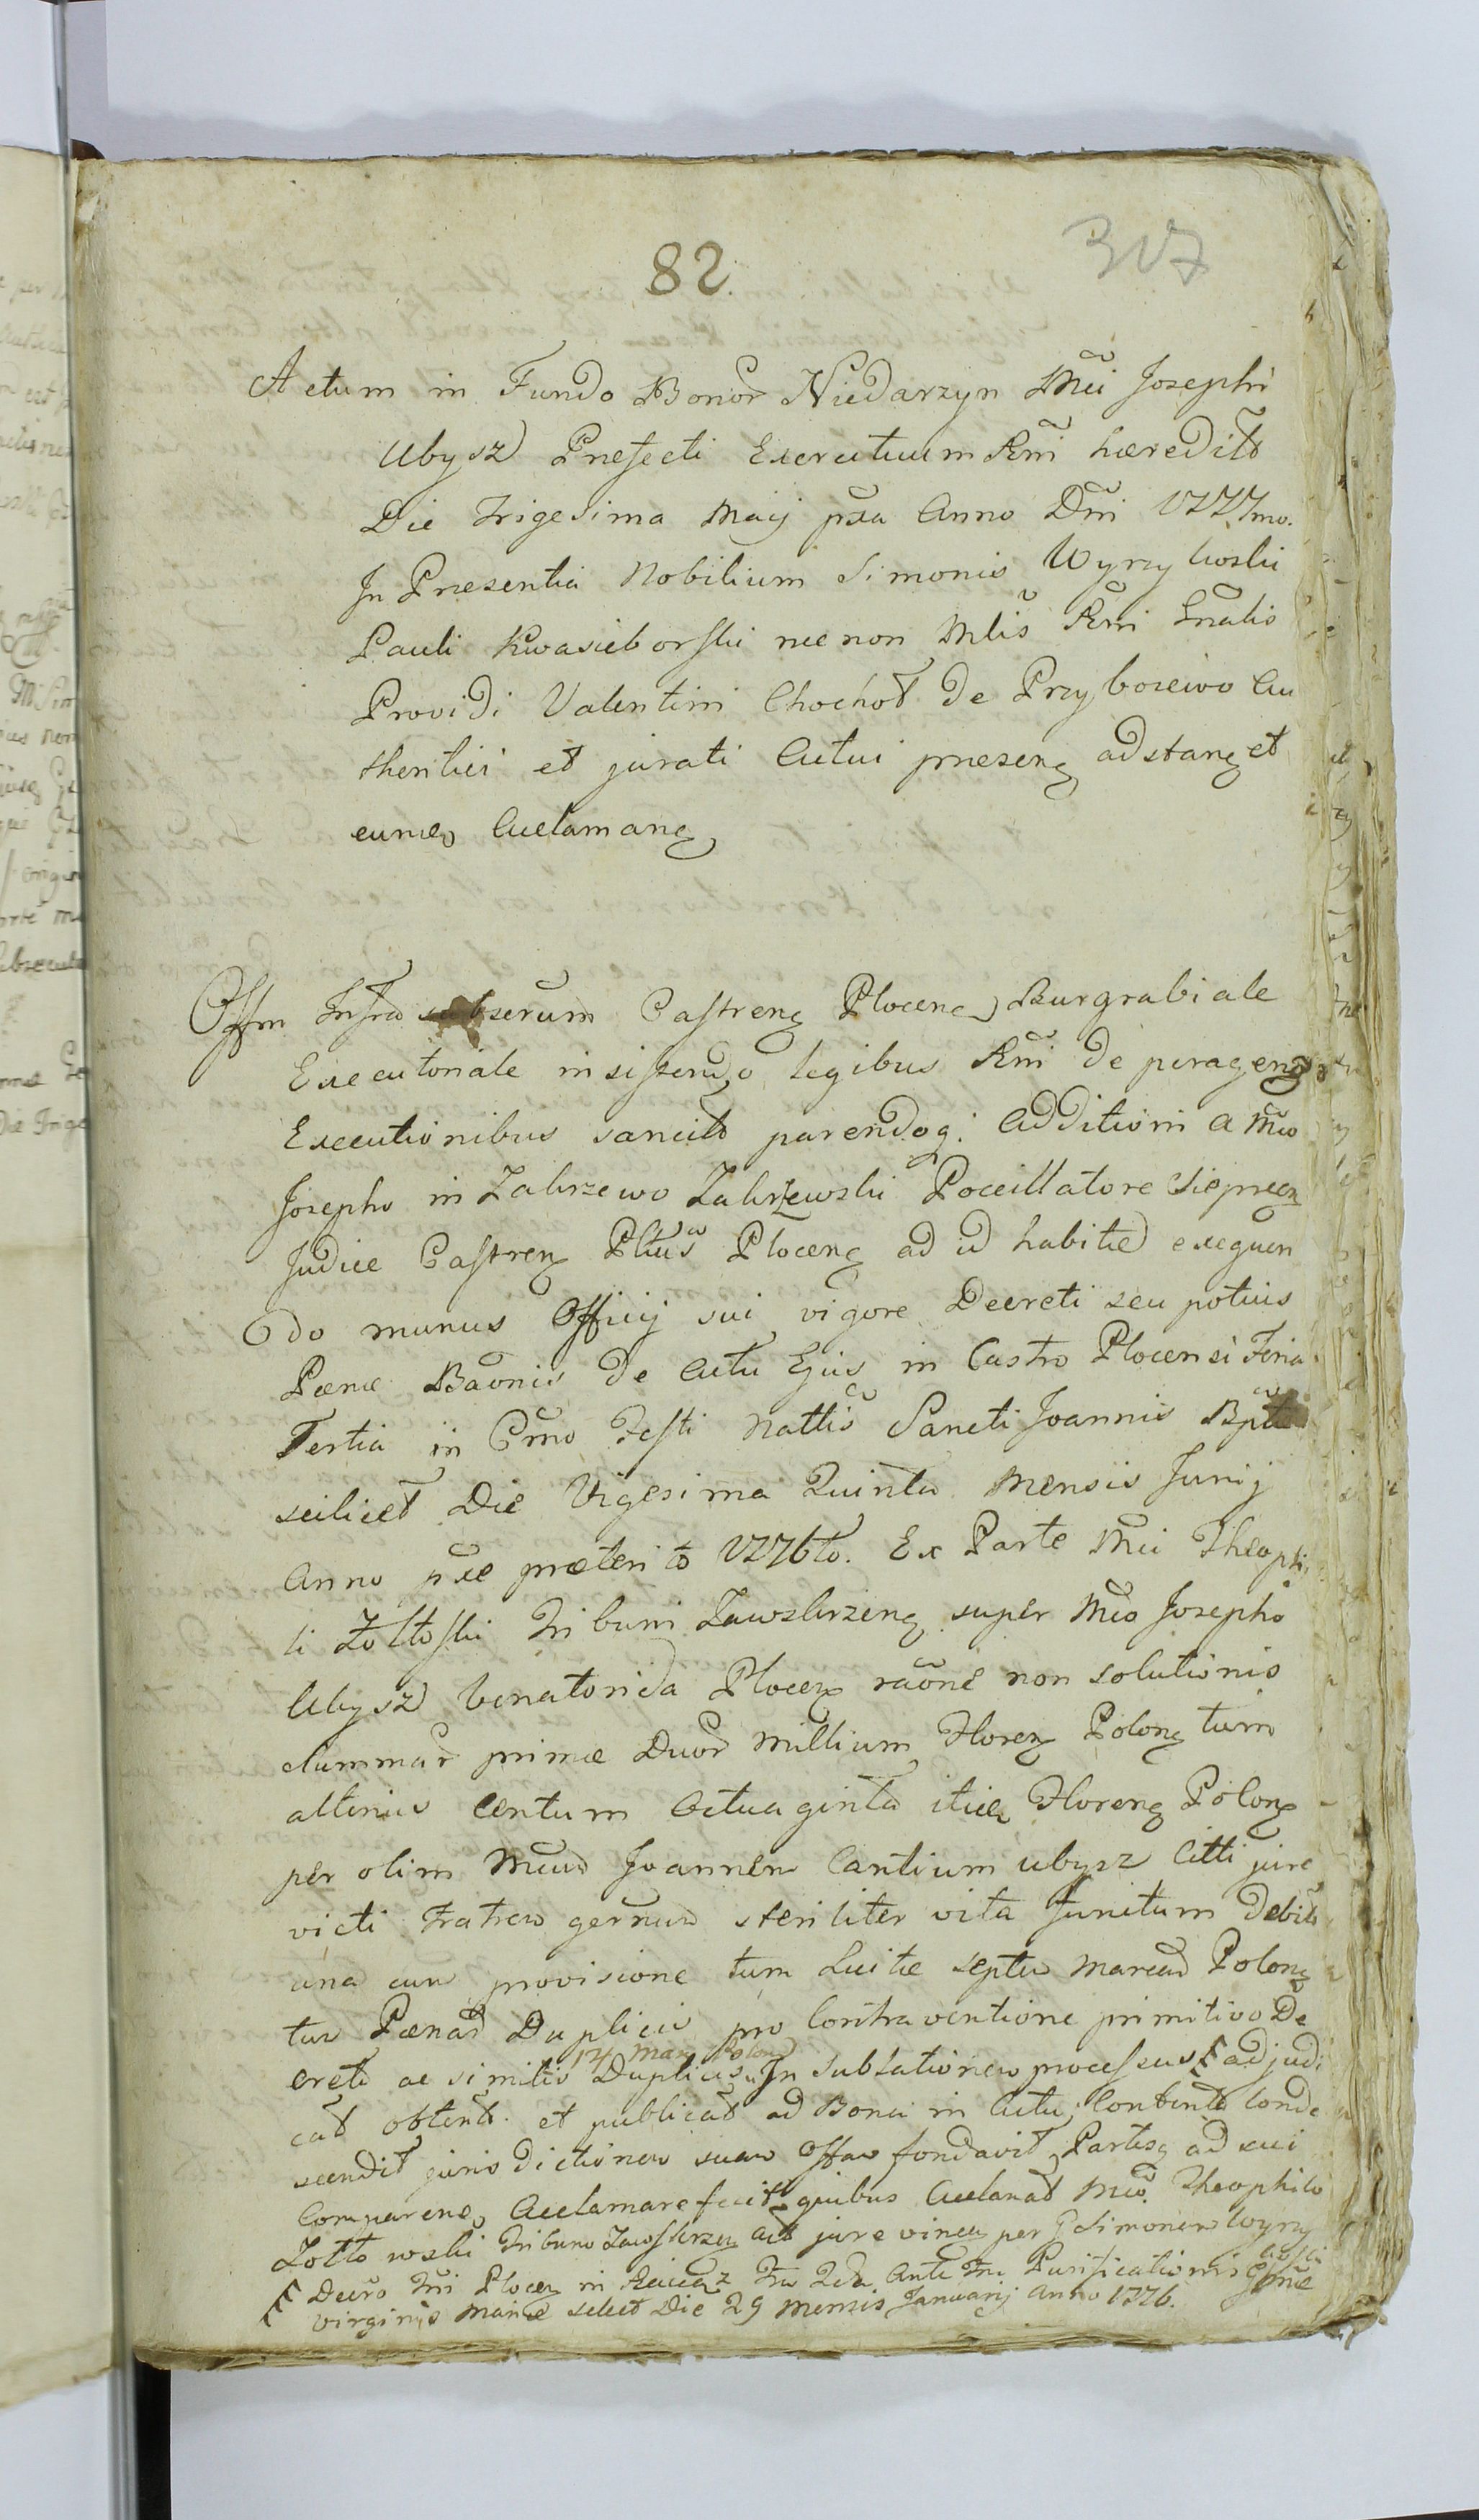 82.
307
Actum in Fundo Bonor Niedarzyn Mci Josephi
Ubysz Præfecti Exercituum Rni hæredits
Die Trigesima Maij pxa Anno Dni 1777mo.
In Præsentia Nobilium Simonis Wyrzykoski
Pauli Kwasieborski nec non Mlis Rni Gnalis
Providi Valentini Chochot de Przyborewo Au
thentici et jurati Actui præseng adstang et
eumq Acclamang
Offm Infra subserum Castreng Ploceng Burgrabiale
Executoriale insistendo legibus Rni de perageng
Executionibus sancits parendoq. Additioni a Mco
Josepho in Zakrzewo Zakrzewski Pocillatore Sieprecz
Judice Castreng Pltus Ploceng ad id habita exequen
do munus Officij sui vigore Decreti seu potius
Pænæ Baonis de Actu Ejus in Castro Plocensi Feria
Tertia in Crno Festi Nattis Sancti Joannis Bpte
scilicet Die Vigesima Quinta Mensis Junij
Anno pxe præterito 1776to. Ex Parte Mci Theophi
li Żołtoski Tribuni Zawskrzeng super Mco Josepho
Ubysz Venatorida Ploceng raone non solutionis
Summar primæ Duor Millium Floreng Polong tum
alterius Centum Octuaginta itieg Floreng Polong
per olim Mcum Joannem Cantium Ubysz Citti jure
victi Fratrem gernum steriliter vita functum debits
una cum provisione tum Luitæ septem Marcar Polong
tum Pænar Duplicis pro Contraventione primitivo De
creto ac similis Duplicis 14 Marc Polon In sublationem processus adjudi
cat obtent. et publicat ad Bona in Actu Content Conde
scendit jurisdictionem suam Offam fundavit Partesq ad sui
Compareng Acclamare fecit quibus Acclamat Mco. Theophilo
Żołtowski Tribuno Zawskrzeng Act jure vincen per G Simonem Wyrzy
koski
Decro Tni Ploceng in Raciąż Fra 2da Ante Fm Purificationis Bmæ
Virginis Mariæ scleet Die 29 Mensis Januarij Anno 1776.